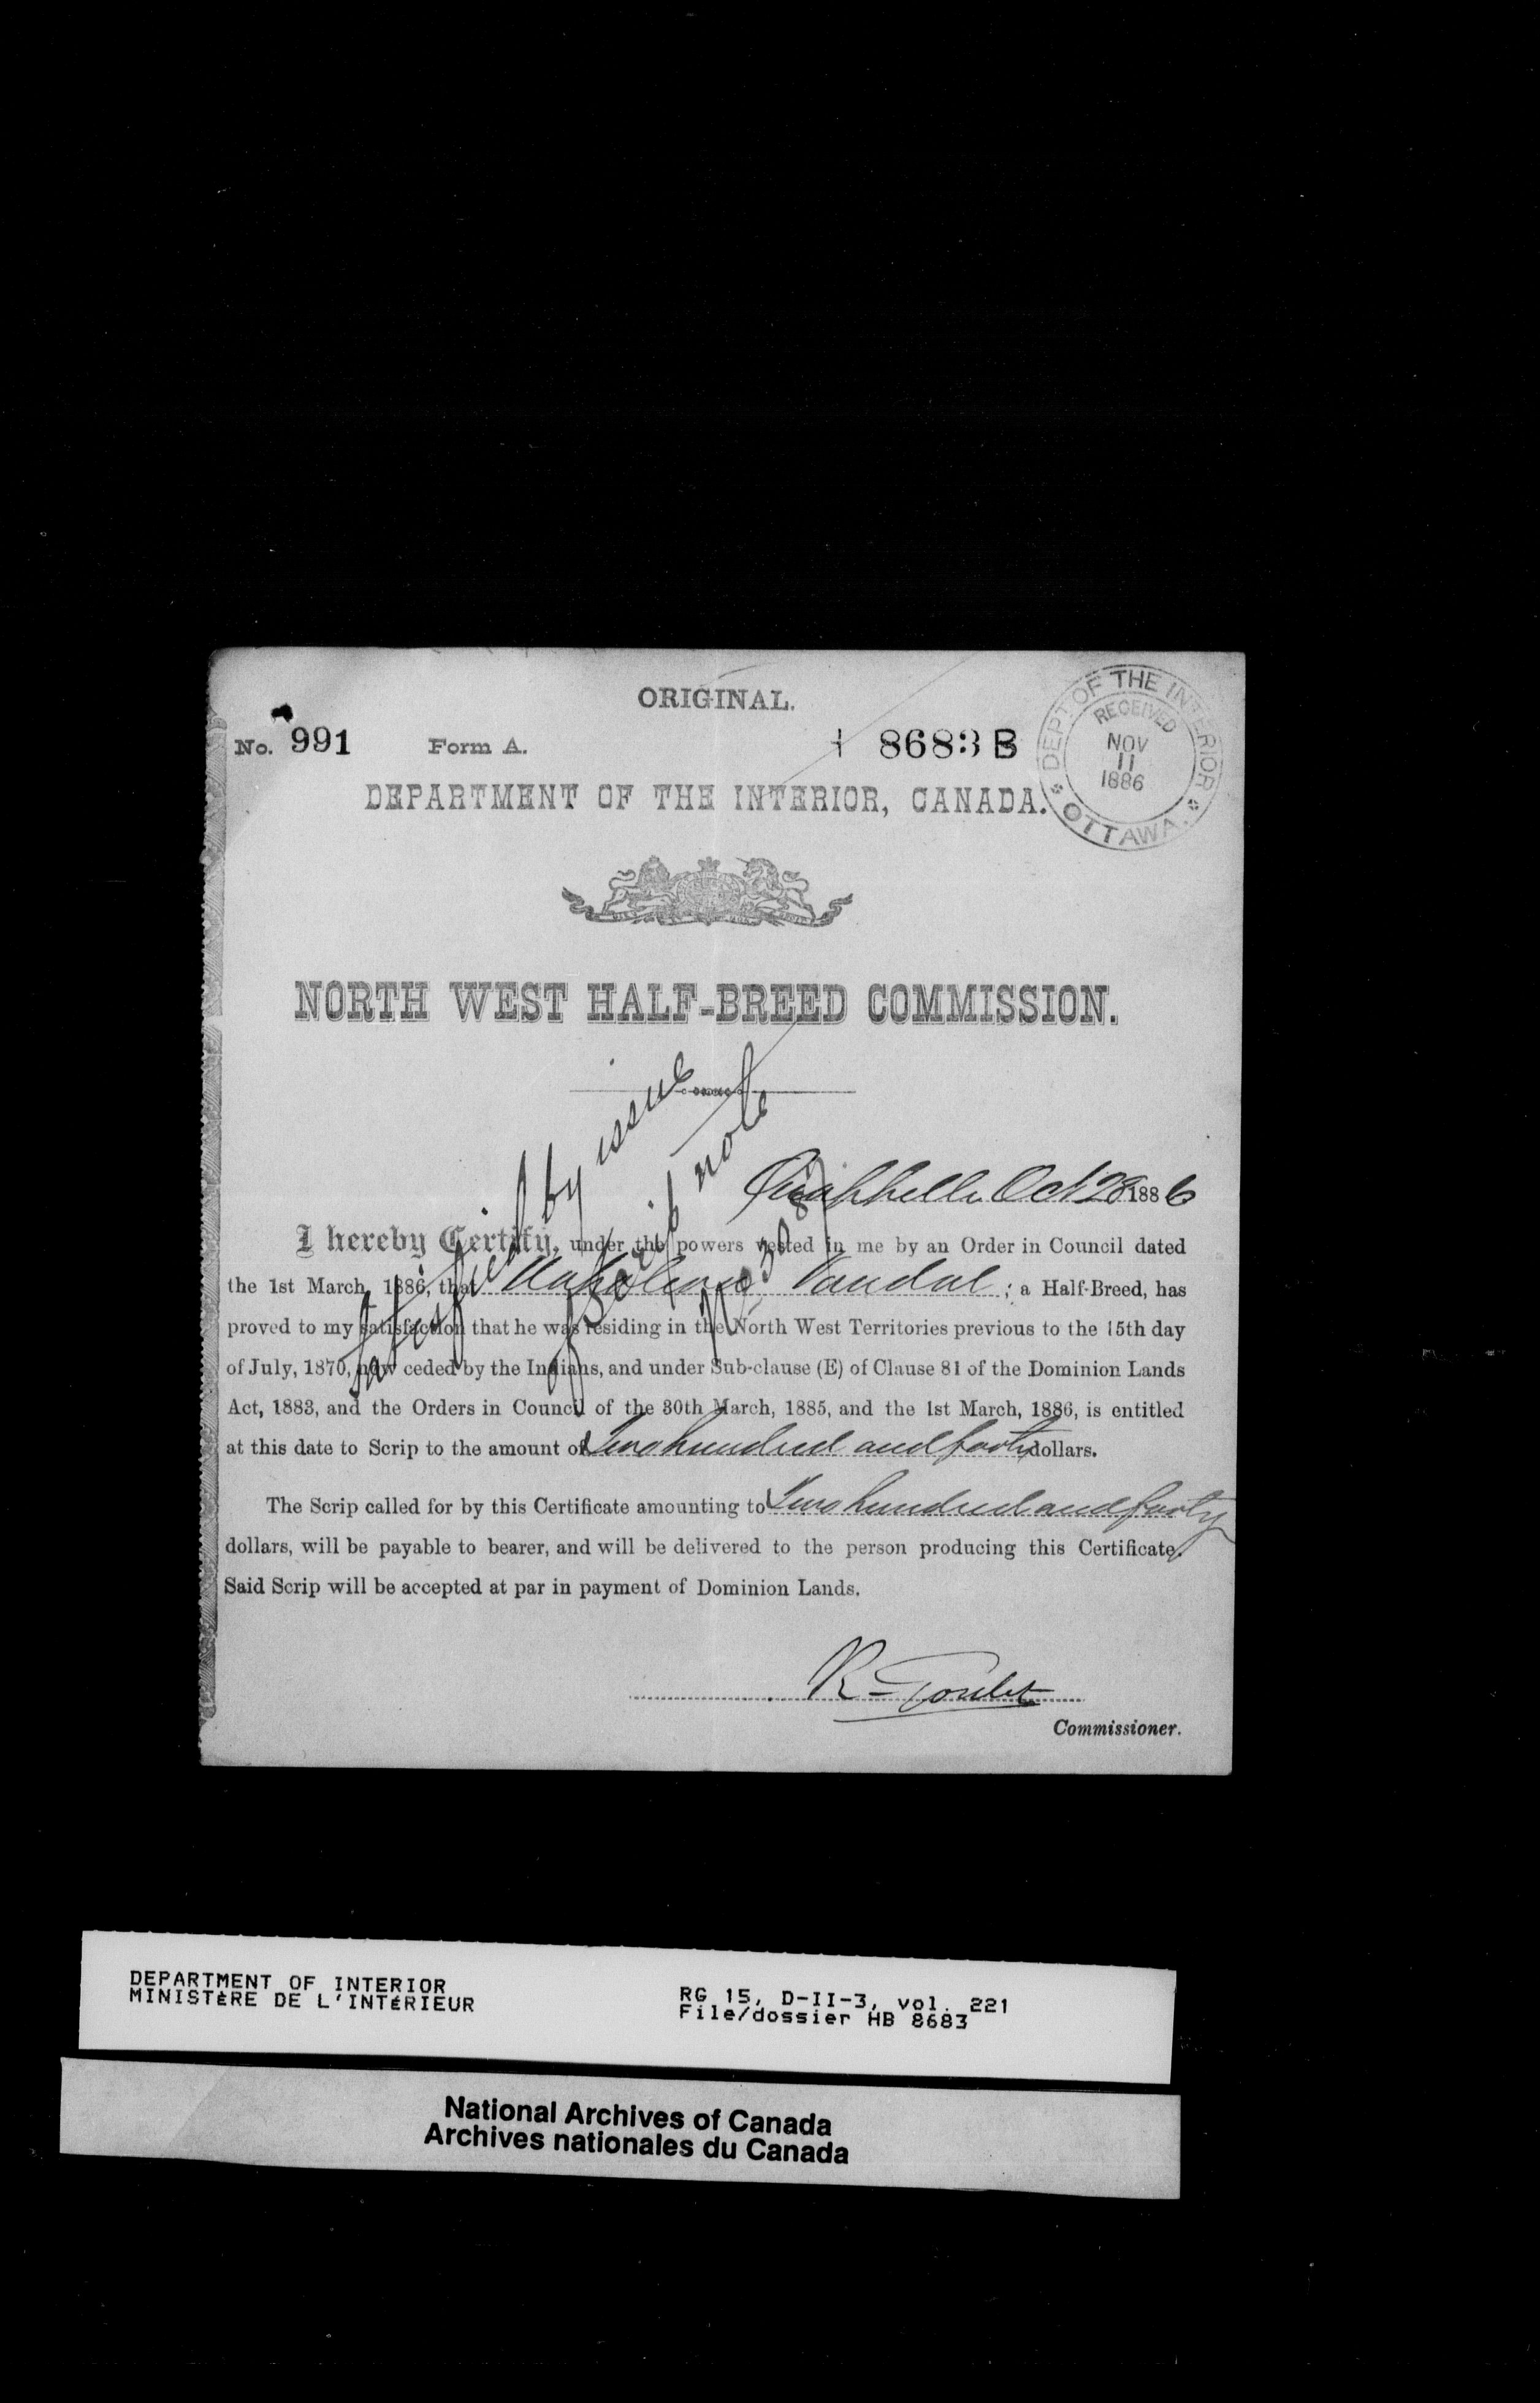 ORIGINAL.
No. 991 Form A. 8683 B
DEPT OF THE INTERIOR
RECEIVED
NOV
11
1886
OTTAWA.
DEPARTMENT OF THE INTERIOR, CANADA.
NORTH WEST HALF-BREED COMMISSION.
Qu'appelle Oct 28 1886
I hereby Certify, under the powers vested in me by an Order in Council dated
the 1st March, 1886, that Napoleon Vandal ; a Half-Breed, has
proved to my satisfaction that he was residing in the North West Territories previous to the 15th day
of July, 1870, now ceded by the Indians, and under Sub-clause (E) of Clause 81 of the Dominion Lands
Act, 1883, and the Orders in Council of the 30th March, 1885, and the 1st March, 1886, is entitled
at this date to Scrip to the amount of Two hundred and forty dollars.
The Scrip called for by this Certificate amounting to Two hundred and forty
dollars, will be payable to bearer, and will be delivered to the person producing this Certificate.
Said Scrip will be accepted at par in payment of Dominion Lands.
R Goulet
Commissioner.
Satisfied by issue
of Scrip note
DEPARTMENT OF INTERIOR
MINISTÈRE DE L'INTÉRIEUR
RG 15, D-II-3, vol. 221
File/dossier HB 8683
National Archives of Canada
Archives nationales du Canada